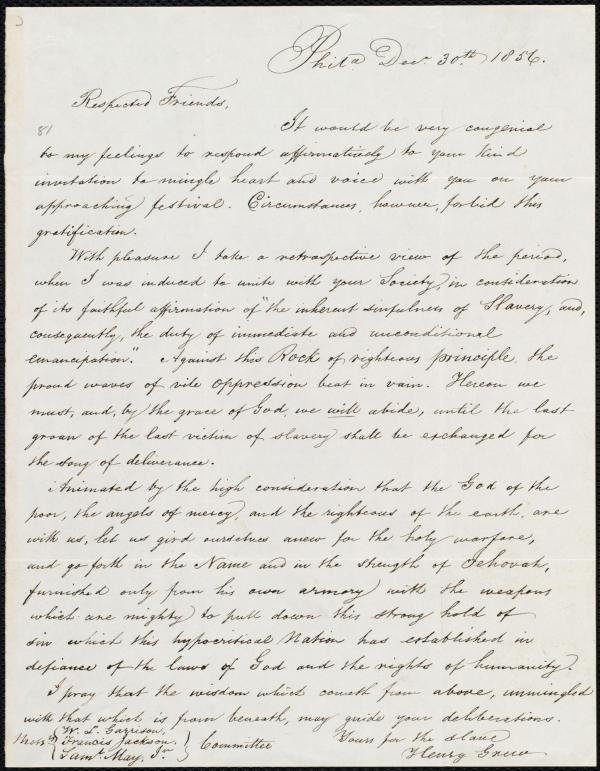 Phila Decr 30th 1856.
Respected Friends,
81
It would be very congenial
to my feelings to respond affirmatively to your kind
invitation to mingle heart and voice with you on your
approaching festival. Circumstances, however, forbid this
gratification.
With pleasure I take a retrospective view of the period,
when I was induced to unite with your Society, in consideration
of its faithful affirmation of "the inherent sinfulness of Slavery, and,
consequently, the duty of immediate and unconditional
emancipation". Against this Rock of righteous principle the
proud waves of vile oppression beat in vain. Hereon we
must, and, by the grace of God, we will abide, until the last
groan of the last victim of slavery shall be exchanged for
the song of deliverance.
Animated by the high consideration that the God of the
poor, the angels of mercy, and the righteous of the earth, are
with us, let us gird ourselves anew for the holy warfare,
and go forth in the Name and in the strength of Jehovah,
furnished only from his own armory with the weapons
which are mighty to pull down this strong hold of
sin which this hypocritical Nation has established in
defiance of the laws of God and the rights of humanity.
I pray that the wisdom which cometh from above, unmingled
with that which is from beneath, may guide your deliberations.
Yours for the slave
Henry Grew
W. L. Garrison,
Francis Jackson,
Saml. May, Jr.
Committee